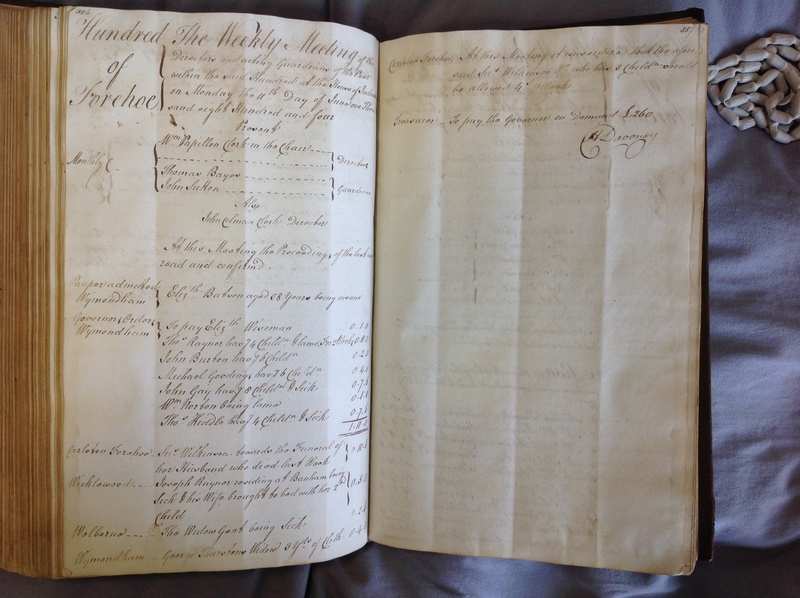 Hundred The Weekly Meeting of the
of Directors and acting Guardians of the Poor
Forehoe within the said Hundred at the House of Industry
on Monday the 4th Day of June one Thou
sand eight Hundred and four
Present
Wm Papillon Clerk in the Chair
Monthly C Director
Thomas Bayos
John Sutton Guardian
Also
John Colman Clerk Director
At this Meeting the Proceedings of the last
read and confirmd
Pauper admitted
Wymondham Elizth Batson aged 58 Years being
Governors Orders
Wymondham To pay Elizth Wiseman
Thos Raynor has 4 Childn & lame for
John Burton has 6 Childn
Michael Gooding has 6 Childn
John Gay has 8 Childn & Sick
Wm Norton being lame
Thos Kiddle has 4 Childn & Sick
Carleton Forehoe Wilkinson towards the Funeral of
her Husband who died last Week
Wicklewood Joseph Raynor residing at Banham being
Sick & his Wife brought to bed with her 2d
Child
Welborne The Widow Gont being Sick
Wymondham George Thurstons Widow 3 Yds of Cloth
351
Carleton Forehoe At this Meeting it was orderd that the afore
said Wilkinson who has 3 Childn should
be allowed 4s Week
Treasurer To pay the Governor on Demand £260